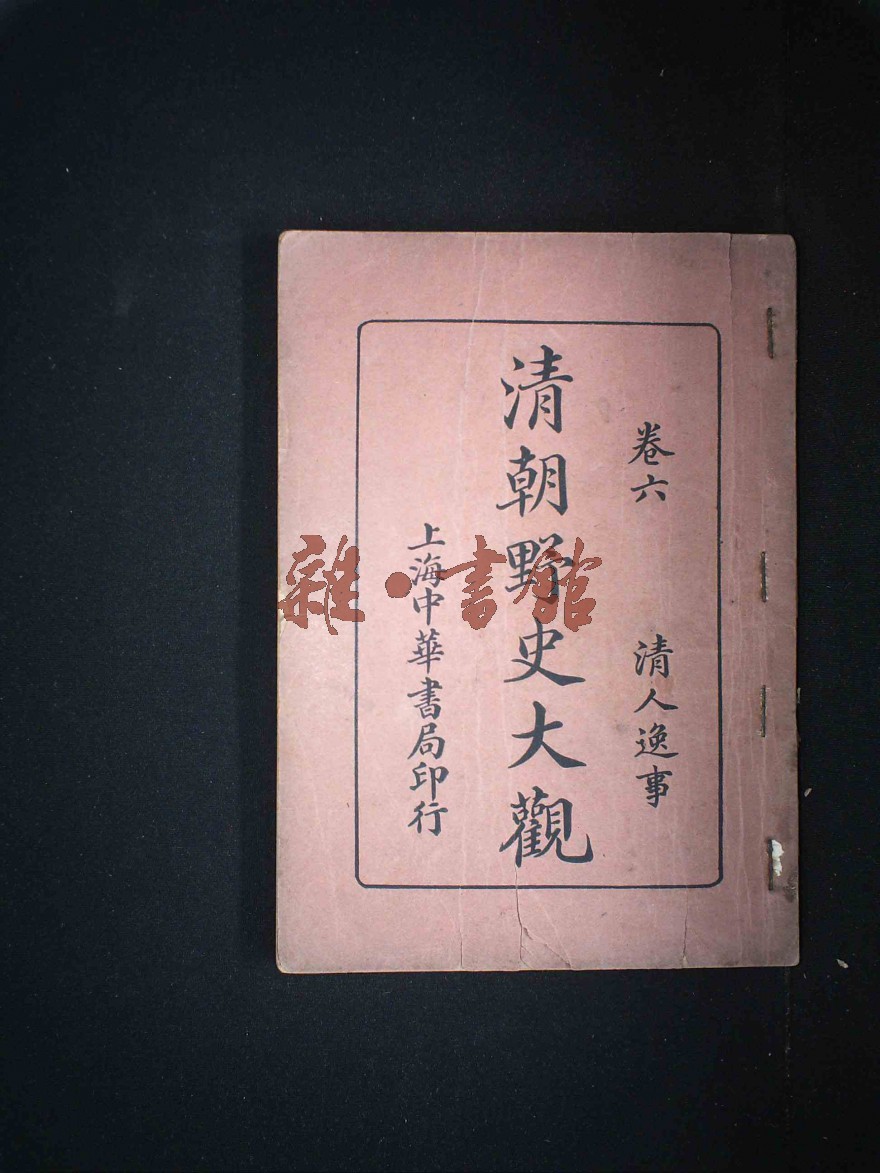 卷六 清人逸事
清朝野史大觀
上海中華書局印行
雜·書館